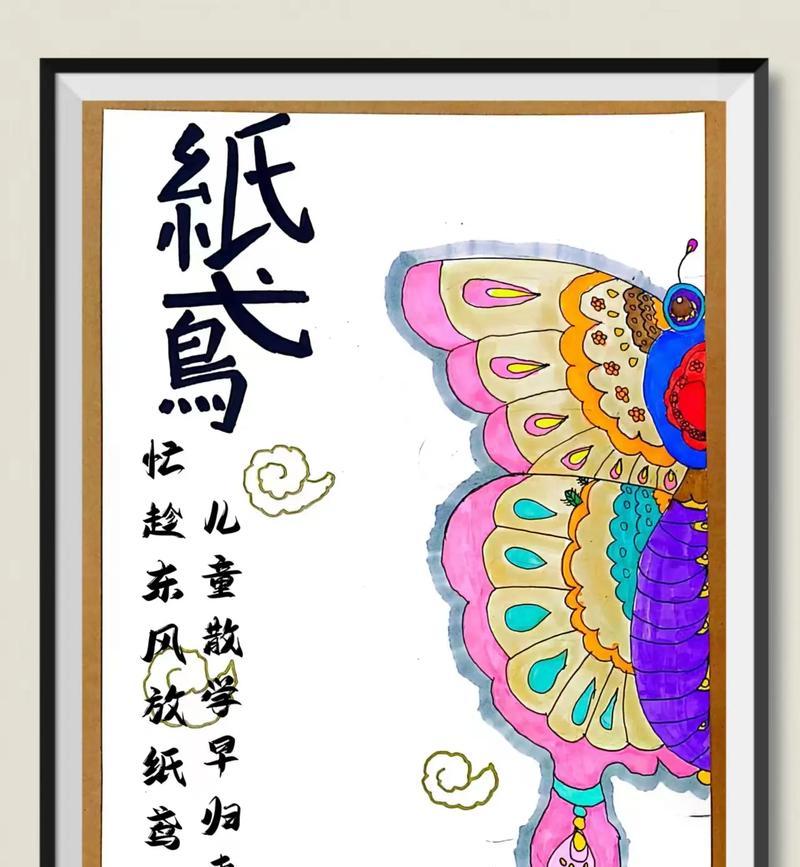 紙鳶
儿童散学早归
忙趁东风放纸鸢